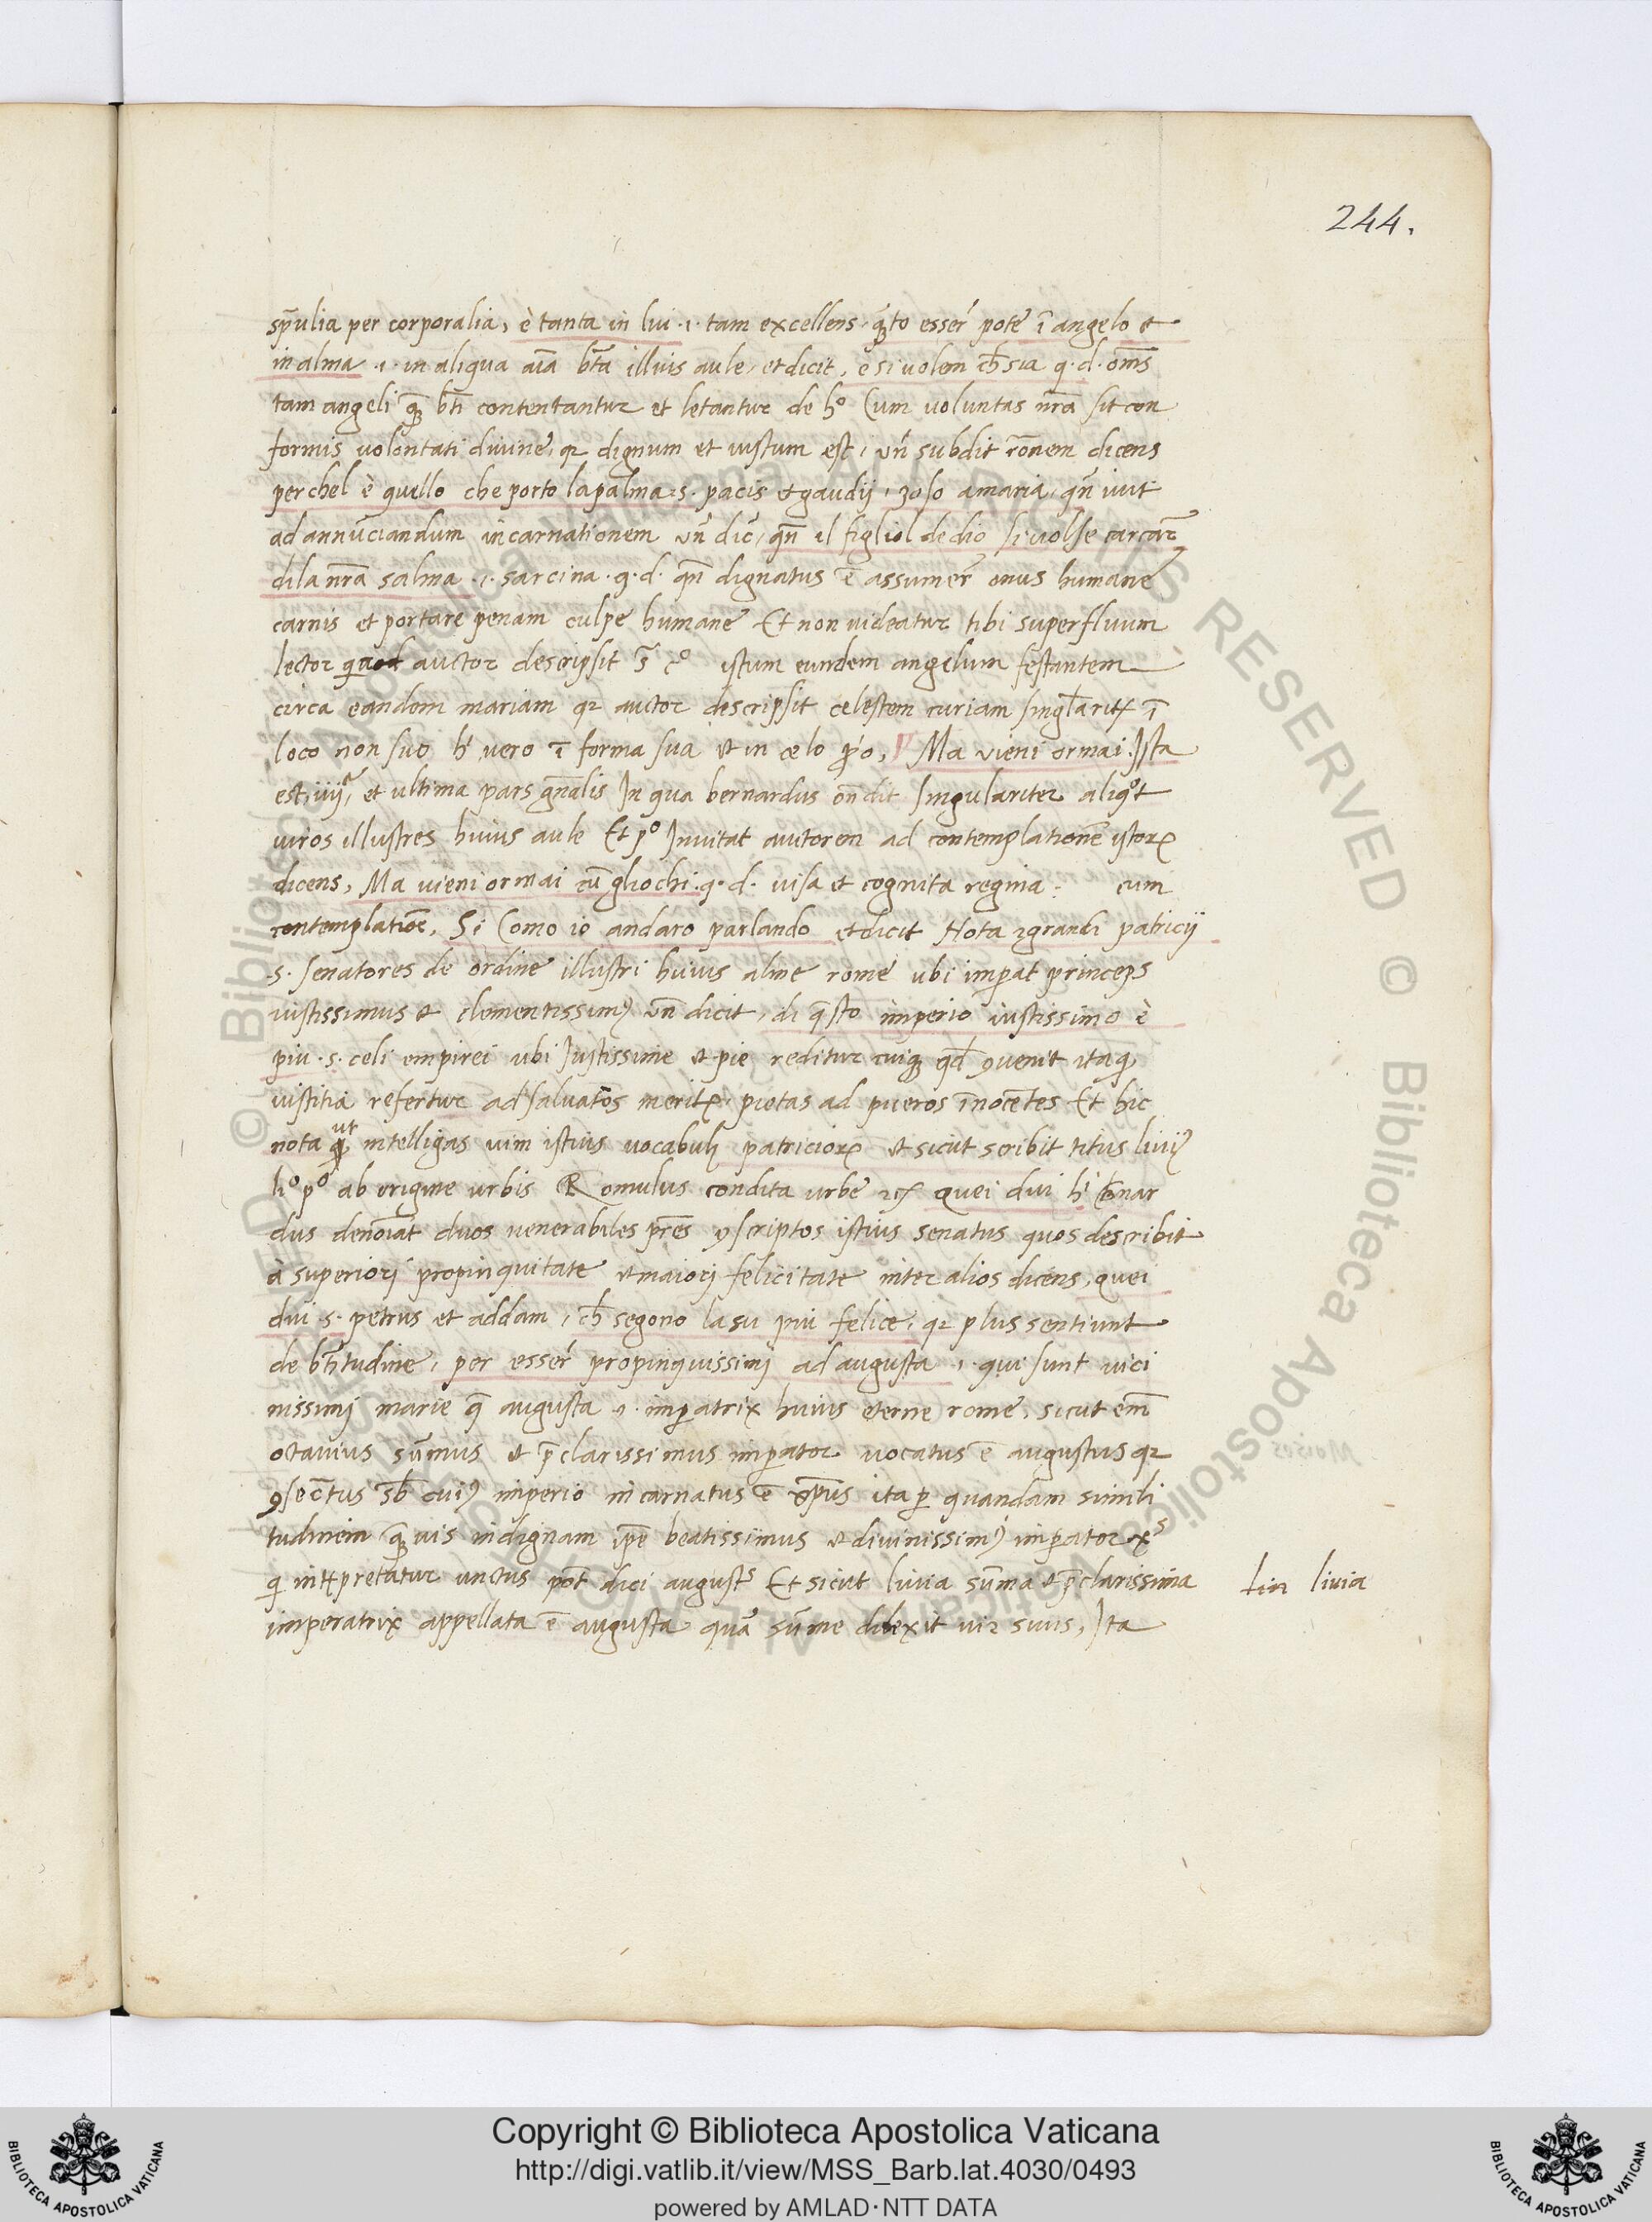 244.
sp̄ulia per corporalia, è tanta in lui .i. tam excellens, q̄to esser pote ī angelo et
in alma .i. in aliqua aīa bt̄a illius aule, et dicit, e si uolem ch̄ sia q. d. om̄s
tam angeli q̄ bt̄i contentantur et letantur de h° Cum voluntas nr̄a sit con
formis volontati diuine, qr dignum et iustum est, vn̄ subdit rōnem dicens
perchel è quello che porto la palma .s. pacis et gaudij, zoso a maria, qn̄ iuit
ad annūciandum incarnationem vn̄ dic̄, qn̄ il figliol de dio si uolse carcar̄
dila nr̄a salma .i. sarcina .q. d. qn̄ dignatus ē assumer̄ onus humane
carnis et portare penam culpe humane Et non uideatur tibi superfluum
lector quod auctor descripsit s̄ c° istum eundem angelum festantem
circa eandem mariam qr auctor descripsit celestem curiam sing̅larit̅ ī
loco non suo hi vero ī forma sua et in celo p̄o, Ma vieni ormai. Ista
est iiijᵃ, et ultima pars gn̄alis In qua bernardus on̄dit singulariter aliqͦt
uiros illustres huius aule Et p° Inuitat auctorem ad contemplationē istoꝝ
dicens, Ma vieni ormai cū gliochi .q. d. visa et cognita regina. cum
contemplatiōe, Si Como io andaro parlando et dicit Nota i grandi patricij
.s. senatores de ordine illustri huius alme rome ubi imp̄at princeps
iustissimus et clementissimꝰ vn̄ dicit, di q̄sto imperio iustissimo è
piu .s. celi empirei ubi Iustissime et pie reditur cuiqꝫ qd̄ ꝯuenit itaqꝫ
iustitia refertur ad saluatos meritꝫ, pietas ad pueros īnocētes Et hic
nota ut intelligas uim istius vocabuli patricioꝝ et sicut scribit titus liuiꝰ
li° p° ab origine urbis Romulus condita urbe ꝛc̄ Quei dui hi bonar
dus denoīat duos uenerabiles pr̄es ꝯscriptos istius senatus quos describit
à superiori propinquitate et maiori felicitate inter alios dicens, quei
dui .s. petrus et addam, ch̄ segono la su piu felice, qr plus sentiunt
de bt̄itudine, per esser propinquissimi ad augusta .i. qui sunt uici
nissimi marie q̄ augusta .i. imp̄atrix huius eterne rome, sicut em̄
octauius sum̄us et p̄clarissimus imp̄ator uocatus ē augustus qr
ꝯsec̄tus sb̄ cuiꝰ imperio incarnatus ē xp̄us ita p̱ quandam simili
tudinem q̄uis indignam ip̄e beatissimus et diuinissimꝰ imp̄ator xˢ
qi int̅pretatur unctus pōt dici augustˢ Et sicut liuia sum̄a et p̄clarissima
imperatrix appellata ē augusta quā sum̄e dilexit uir suus, Ita
liuia
Copyright © Biblioteca Apostolica Vaticana
http://digi.vatlib.it/view/MSS_Barb.lat.4030/0493
powered by AMLAD·NTT DATA
BIBLIOTECA APOSTOLICA VATICANA
BIBLIOTECA APOSTOLICA VATICANA